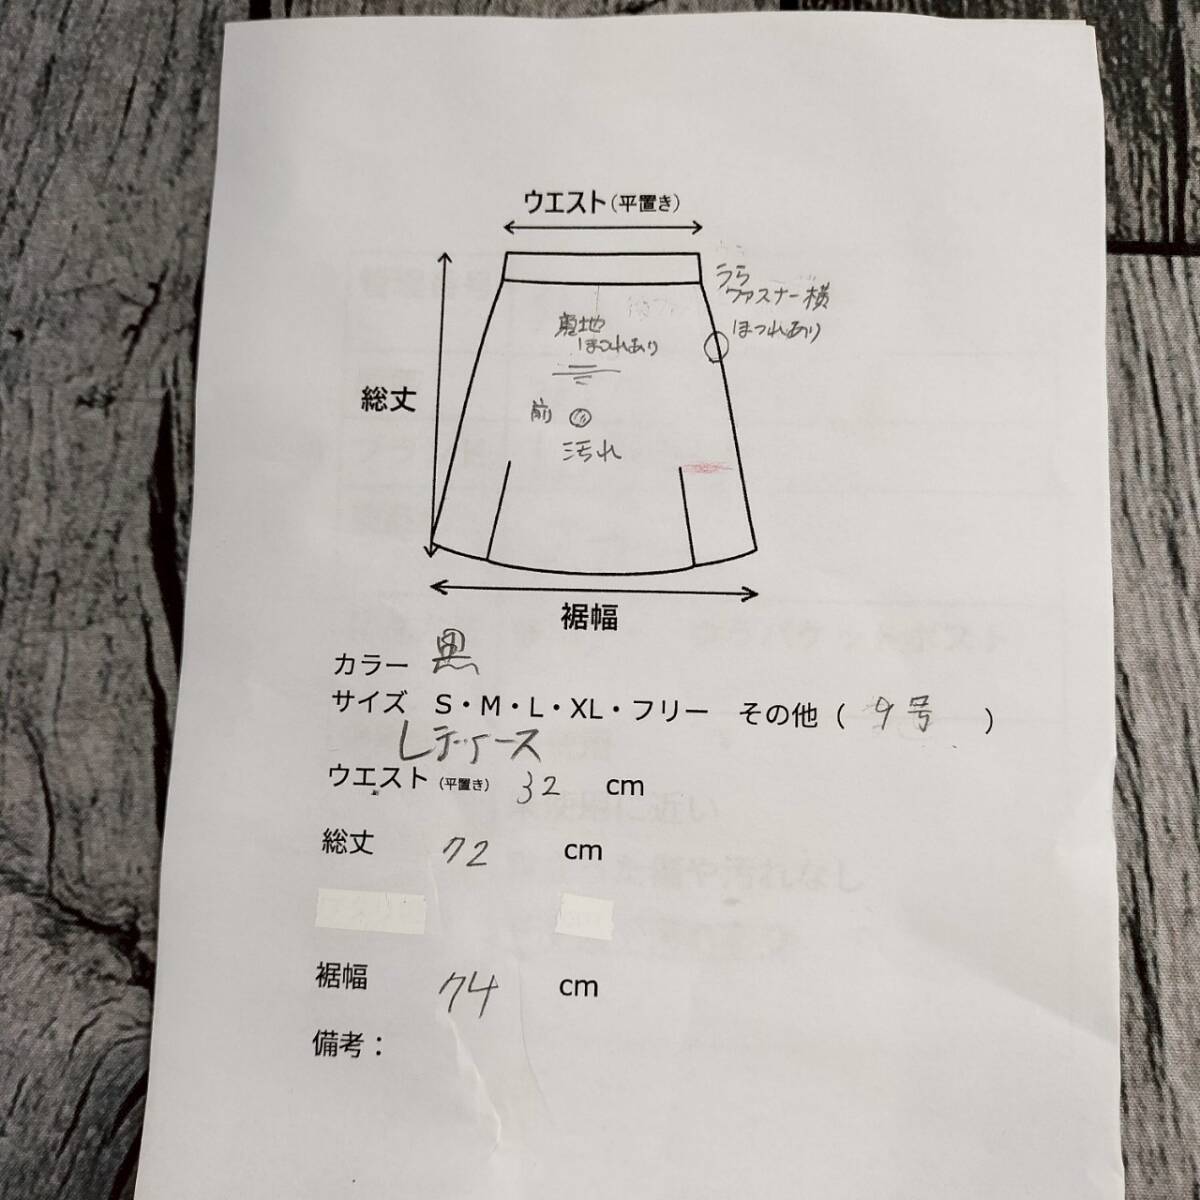 ウエスト（平置き）
うら
ファスナー横
ほつれあり
裏地
ほつれあり
総丈
前
汚れ
裾幅
カラー 黒
サイズ S・M・L・XL・フリー その他（ 9号 ）
レディース
ウエスト（平置き） 32 cm
総丈 72 cm
裾幅 74 cm
備考：